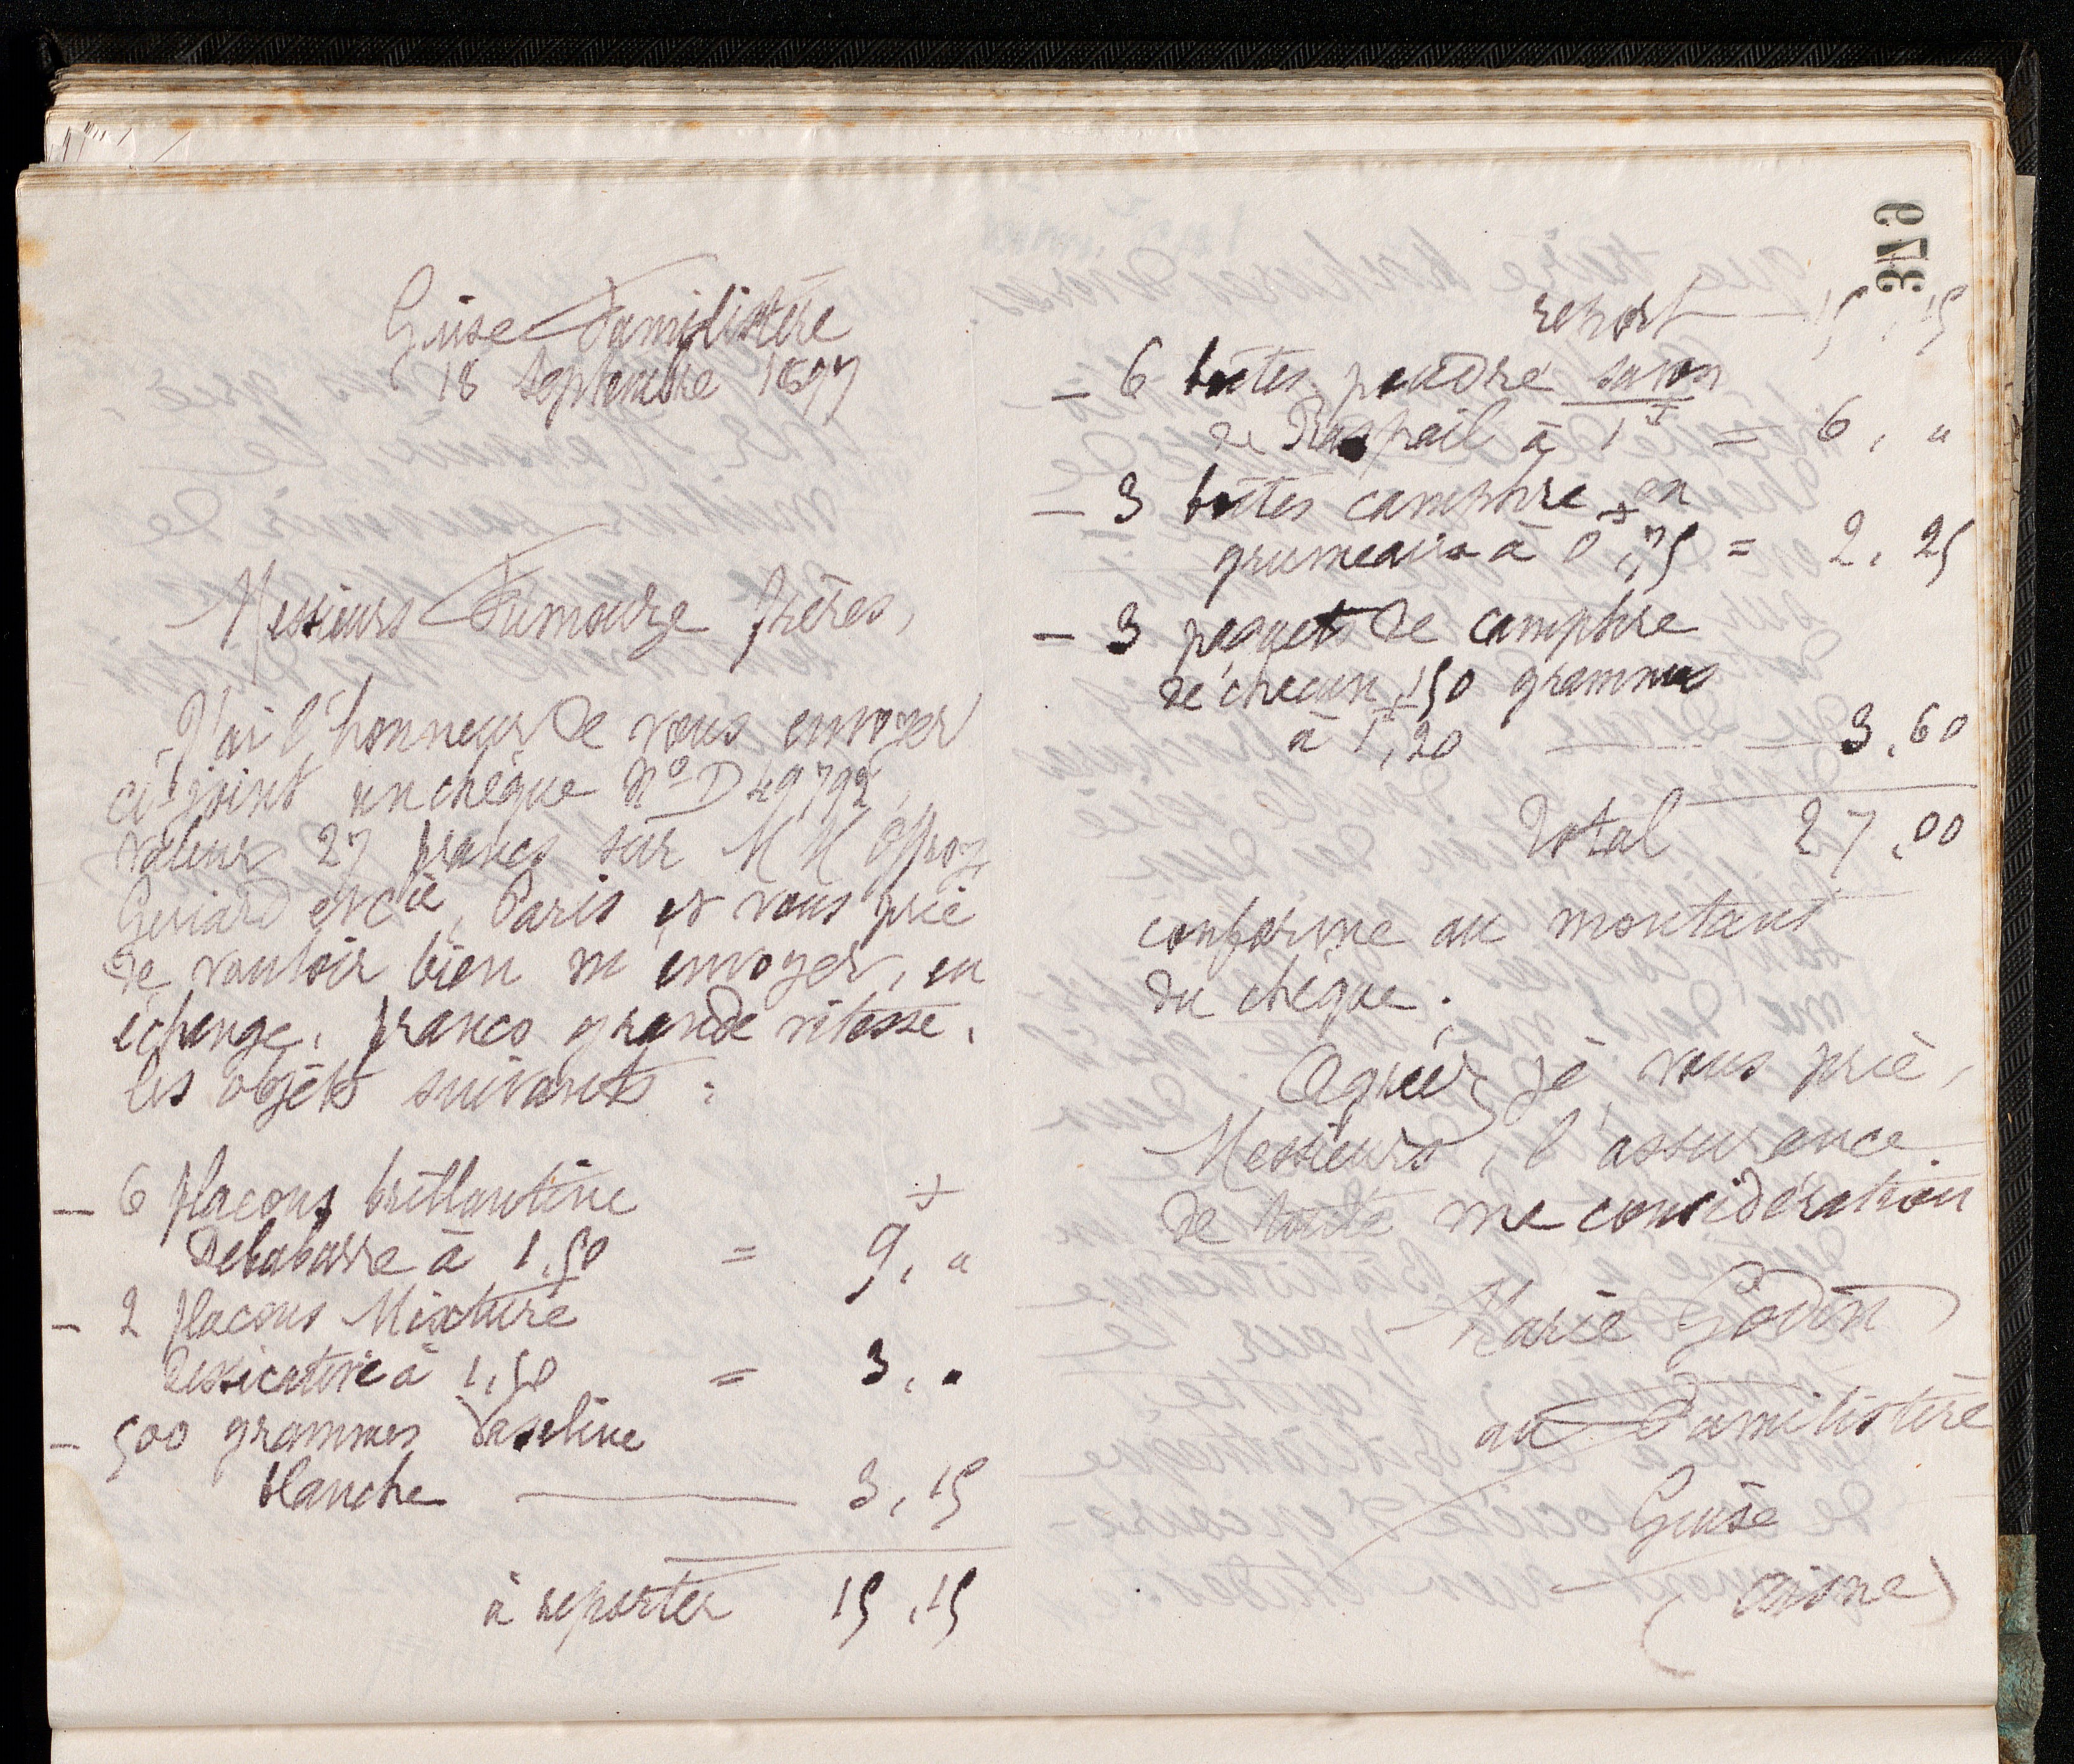 Guise Familistère
18 septembre 1897
Messieurs Fumouze frères,
J'ai l'honneur de vous envoyer
ci-joint un chèque No D 49792,
valeur 27 francs sur MM Offroy
Guiard et Cie, Paris et vous prie
de vouloir bien m'envoyer, en
échange, franco grande vitesse,
les objets suivants :
— 6 flacons brillantine
Delabarre à 1,50 = 9, "
— 2 flacons Mixture
dessicative à 1,50 = 3, "
— 500 grammes Vaseline
blanche — 3,15
à reporter 15,15
379
report — 15,15
— 6 boîtes poudre savon
de Raspail à 1f = 6, "
— 3 boîtes camphre en
grumeaux à 0f,75 = 2,25
— 3 paquets de camphre
de chacun 150 grammes
à 1f,20 — 3,60
Total 27,00
conforme au montant
du chèque.
Agréez, je vous prie,
Messieurs, l'assurance
de toute ma considération
Marie Godin
au Familistère
Guise
(Aisne)